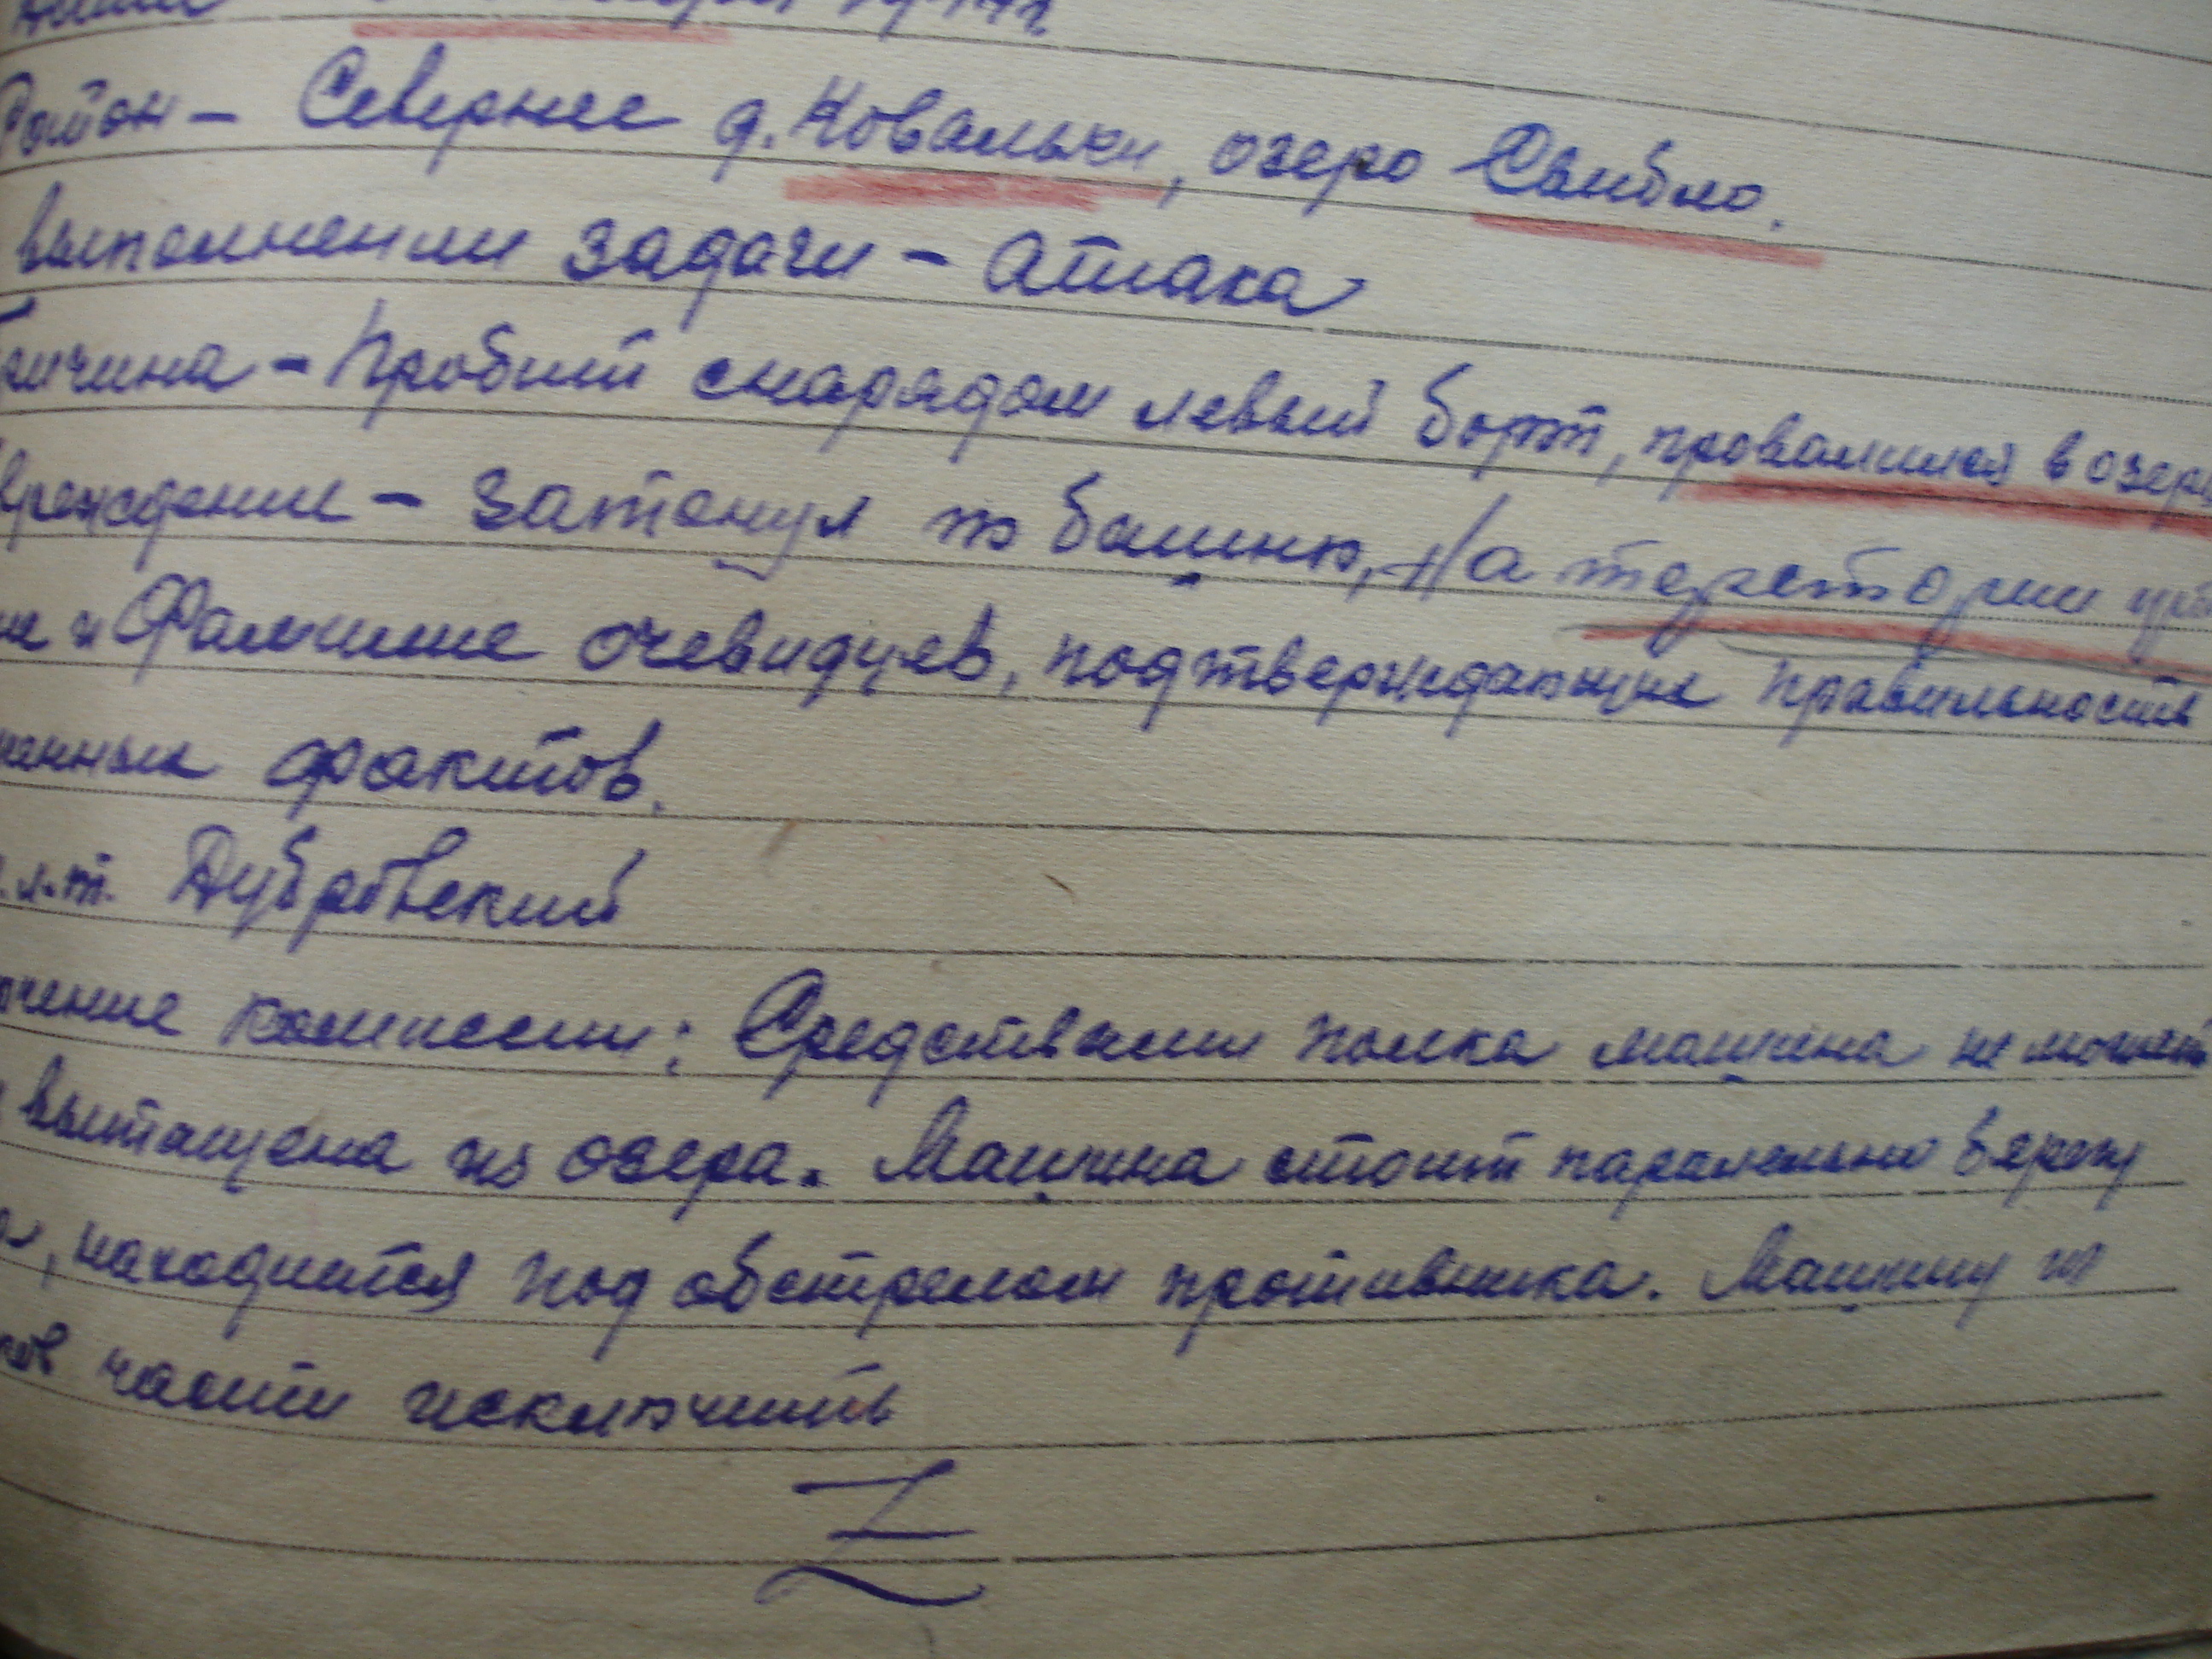 Район - Севернее д. Ковальки, озеро Свибло.
выполнении задачи - Атака
ричина - Пробит снарядом левый борт, провалился в озеро
вреждение - Затонул по башню, На теретории
и Фамилие очевидцев, подтверждающие правильность
ченных фактов.
л-т. Дубровский
ючение комиссии: Средствами полка машина не может
вытащена из озера. Машина стоит паралельно берегу
, находится под обстрелом противника. Машину из
ков части исключить
Z